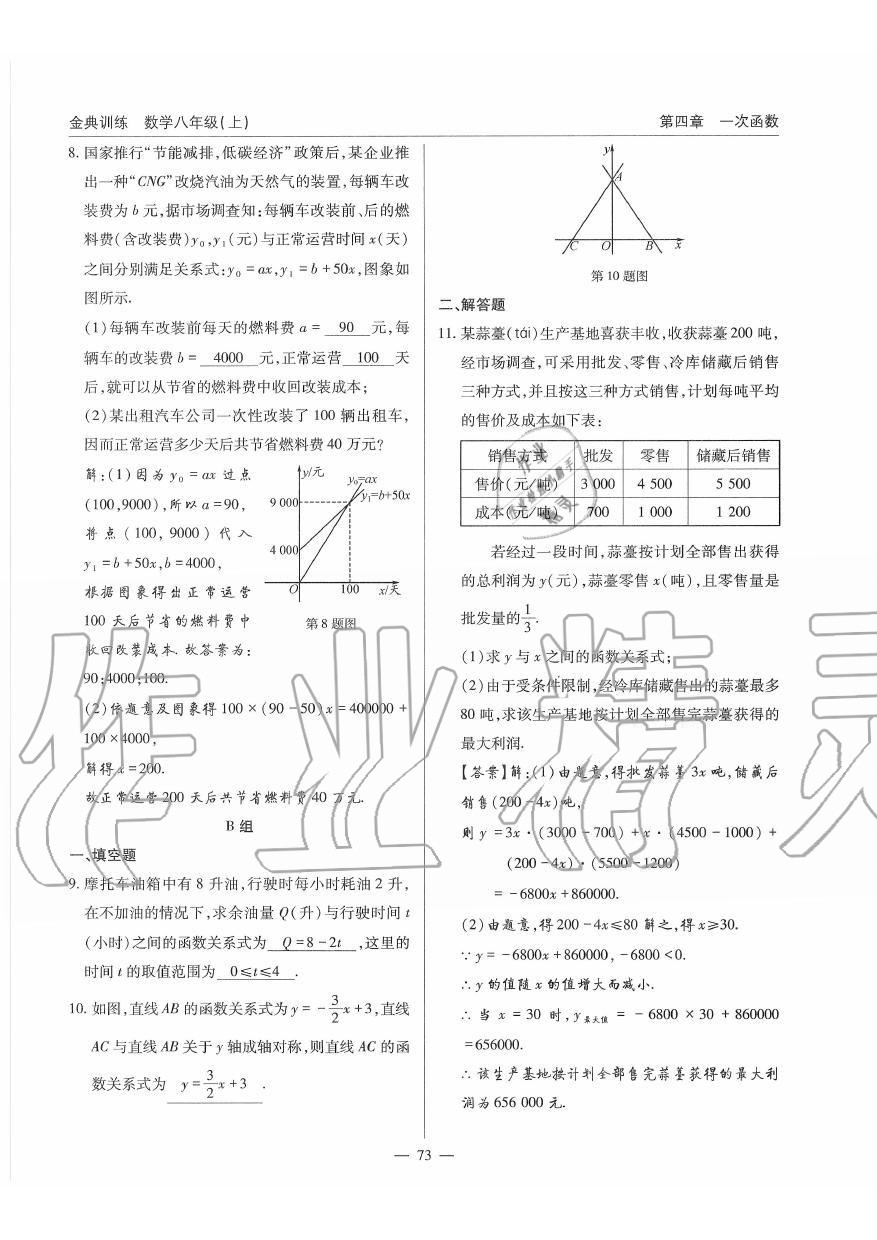 金典训练 数学八年级(上)
第四章 一次函数
8. 国家推行“节能减排,低碳经济”政策后,某企业推
出一种“CNG”改烧汽油为天然气的装置,每辆车改
装费为 b 元,据市场调查知:每辆车改装前、后的燃
料费(含改装费)y₀,y₁(元)与正常运营时间 x(天)
之间分别满足关系式:y₀ = ax,y₁ = b + 50x,图象如
图所示.
(1)每辆车改装前每天的燃料费 a = 90 元,每
辆车的改装费 b = 4000 元,正常运营 100 天
后,就可以从节省的燃料费中收回改装成本;
(2)某出租汽车公司一次性改装了 100 辆出租车,
因而正常运营多少天后共节省燃料费 40 万元?
解:(1)因为 y₀ = ax 过点
(100,9000),所以 a = 90,
将点(100, 9000)代入
y₁ = b + 50x,b = 4000,
根据图象得出正常运营
100 天后节省的燃料费中
收回改装成本. 故答案为:
90;4000;100.
y/元
y₀=ax
y₁=b+50x
9 000
4 000
O 100 x/天
第 8 题图
(2)依题意及图象得 100 × (90 - 50)x = 400000 +
100 × 4000,
解得 x = 200.
故正常运营 200 天后共节省燃料费 40 万元.
B 组
一、填空题
9. 摩托车油箱中有 8 升油,行驶时每小时耗油 2 升,
在不加油的情况下,求余油量 Q(升)与行驶时间 t
(小时)之间的函数关系式为 Q = 8 - 2t ,这里的
时间 t 的取值范围为 0≤t≤4 .
10. 如图,直线 AB 的函数关系式为 y = -3/2x + 3,直线
AC 与直线 AB 关于 y 轴成轴对称,则直线 AC 的函
数关系式为 y = 3/2x + 3 .
y
A
C O B x
第 10 题图
二、解答题
11. 某蒜薹(tái)生产基地喜获丰收,收获蒜薹 200 吨,
经市场调查,可采用批发、零售、冷库储藏后销售
三种方式,并且按这三种方式销售,计划每吨平均
的售价及成本如下表:
销售方式 批发 零售 储藏后销售
售价(元/吨) 3 000 4 500 5 500
成本(元/吨) 700 1 000 1 200
若经过一段时间,蒜薹按计划全部售出获得
的总利润为 y(元),蒜薹零售 x(吨),且零售量是
批发量的1/3.
(1)求 y 与 x 之间的函数关系式;
(2)由于受条件限制,经冷库储藏售出的蒜薹最多
80 吨,求该生产基地按计划全部售完蒜薹获得的
最大利润.
【答案】解:(1)由题意,得批发蒜薹 3x 吨,储藏后
销售(200 - 4x)吨,
则 y = 3x · (3000 - 700) + x · (4500 - 1000) +
(200 - 4x) · (5500 - 1200)
= - 6800x + 860000.
(2)由题意,得 200 - 4x≤80 解之,得 x≥30.
∵ y = - 6800x + 860000, - 6800 < 0.
∴ y 的值随 x 的值增大而减小.
∴ 当 x = 30 时,y最大值 = - 6800 × 30 + 860000
= 656000.
∴ 该生产基地按计划全部售完蒜薹获得的最大利
润为 656 000 元.
作业精灵
— 73 —